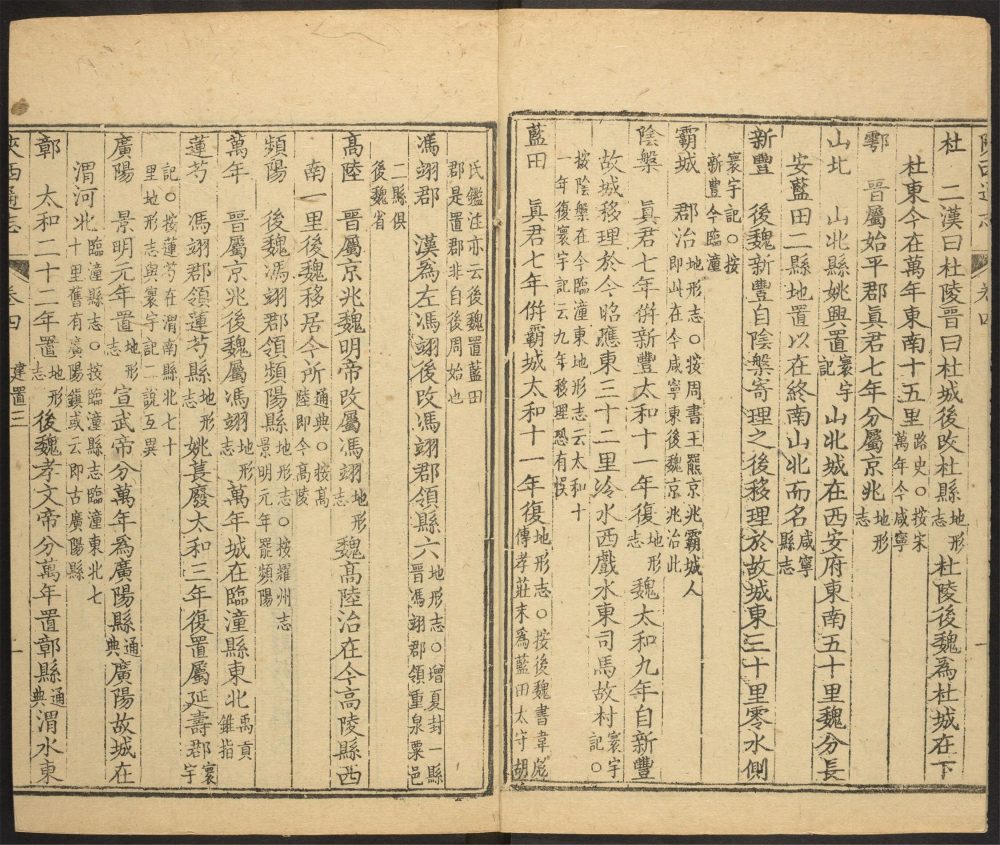 陝西通志 卷四
杜 二漢曰杜陵晉曰杜城後改杜縣地形志 杜陵後魏爲杜城在下
杜東今在萬年東南十五里路史○按宋萬年今咸寧
鄠 晉屬始平郡眞君七年分屬京兆地形志
山北 山北縣姚興置寰宇記 山北城在西安府東南五十里魏分長
安藍田二縣地置以在終南山北而名咸寧縣志
新豐 後魏新豐自陰槃寄理之後移理於故城東三十里零水側
寰宇記○按新豐今臨潼
霸城 郡治地形志○按周書王羆京兆霸城人即此在今咸寧東後魏京兆治此
陰槃 眞君七年併新豐太和十一年復地形志 魏太和九年自新豐
故城移理於今昭應東三十二里泠水西戲水東司馬故村寰宇記○
按陰槃在今臨潼東地形志云太和十一年復寰宇記云九年移理恐有誤
藍田 眞君七年併霸城太和十一年復地形志○按後魏書韋彪傳孝莊末爲藍田太守胡
氏鑑注亦云後魏置藍田郡是置郡非自後周始也
馮翊郡 漢爲左馮翊後改馮翊郡領縣六地形志○增夏封一縣晉馮翊郡領重泉粟邑
二縣俱後魏省
高陸 晉屬京兆魏明帝改屬馮翊地形志 魏高陸治在今高陵縣西
南一里後魏移居今所通典○按高陸即今高陵
頻陽 後魏馮翊郡領頻陽縣地形志○按耀州志景明元年罷頻陽
萬年 晉屬京兆後魏屬馮翊地形志 萬年城在臨潼縣東北禹貢錐指
蓮芍 馮翊郡領蓮芍縣地形志 姚萇廢太和三年復置屬延壽郡寰宇
記○按蓮芍在渭南縣北七十里地形志與寰宇記二說互異
廣陽 景明元年置地形志 宣武帝分萬年爲廣陽縣通典廣陽故城在
渭河北臨潼縣志○按臨潼縣志臨潼東北七十里舊有廣陽鎮或云即古廣陽縣
鄣 太和二十二年置地形志 後魏孝文帝分萬年置鄣縣通典渭水東
陝西通志 卷四 建置三